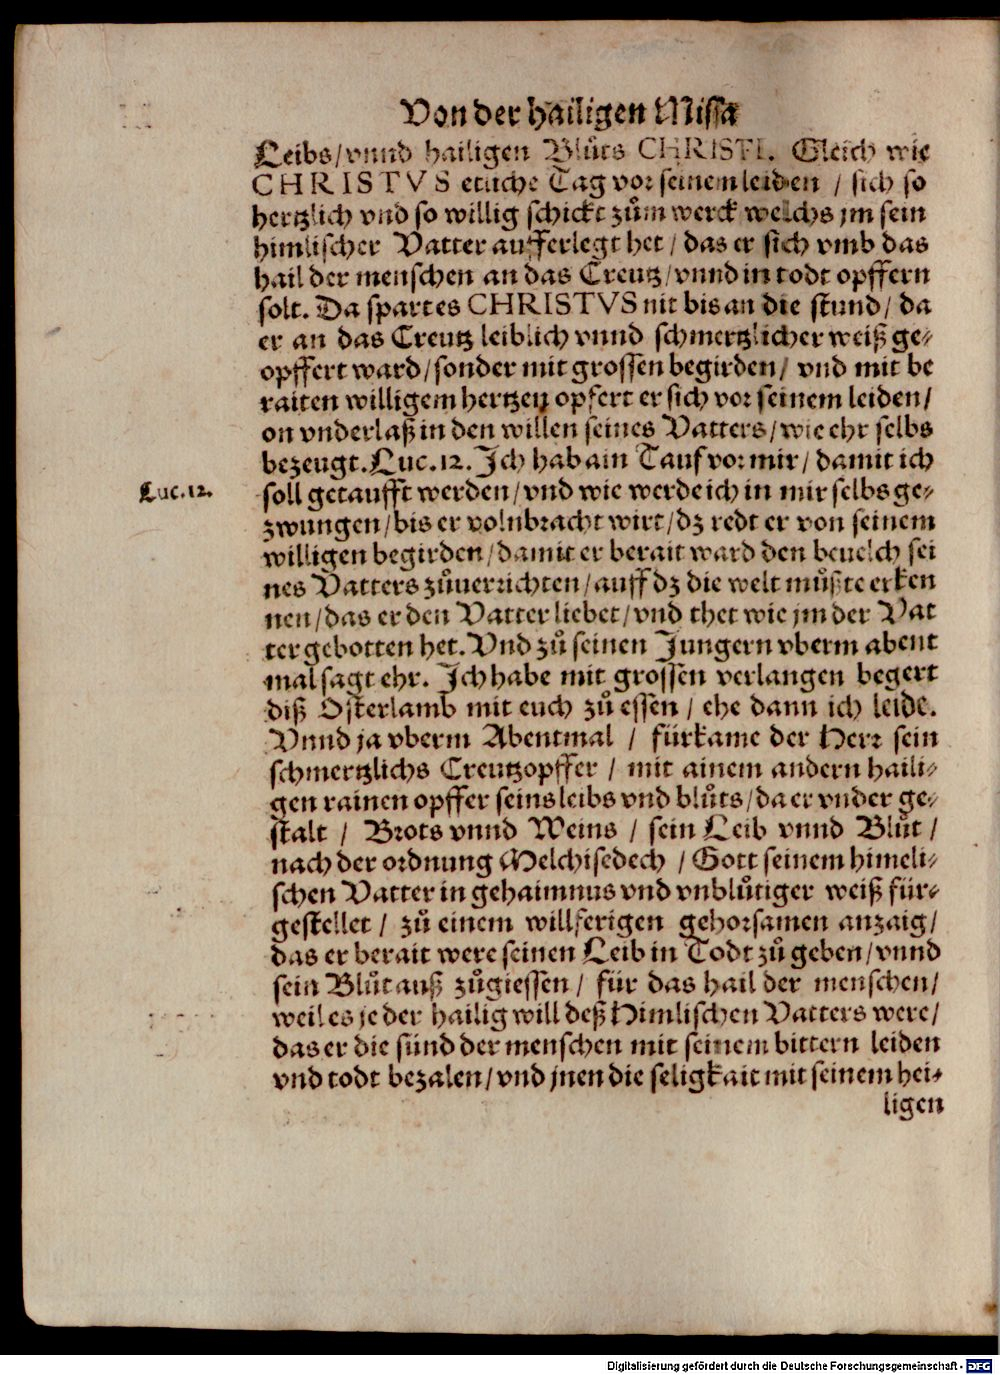 Von der hailigen Missa
Leibs/vnnd hailigen Blůts CHRISTI. Gleich wie
CHRISTVS etliche Tag vor seinem leiden / sich so
hertzlich vnd so willig schickt zům werck welchs jm sein
himlischer Vatter aufferlegt het / das er sich vmb das
hail der menschen an das Creutz/vnnd in todt opffern
solt. Da spart es CHRISTVS nit bis an die stund/ da
er an das Creutz leiblich vnnd schmertzlicher weiß ge-
opffert ward/sonder mit grossen begirden/ vnd mit be
raiten willigem hertzen opfert er sich vor seinem leiden/
on vnderlaß in den willen seines Vatters/wie ehr selbs
bezeugt. Luc.12. Ich hab ain Tauf vor mir/ damit ich
Luc.12.
soll getaufft werden/vnd wie werde ich in mir selbs ge-
zwungen/bis er volnbracht wirt/dz redt er von seinem
willigen begirden/damit er berait ward den beuelch sei
nes Vatters zůuerrichten/auff dz die welt můßte erken
nen/das er den Vatter liebet/vnd thet wie jm der Vat
ter gebotten het. Vnd zů seinen Jungern vberm abent
mal sagt ehr. Ich habe mit grossen verlangen begert
diß Osterlamb mit euch zů essen / ehe dann ich leide.
Vnnd ja vberm Abentmal / fürkame der Herr sein
schmertzlichs Creutzopffer / mit ainem andern haili-
gen rainen opffer seins leibs vnd blůts/da er vnder ge-
stalt / Brots vnnd Weins / sein Leib vnnd Blůt /
nach der ordnung Melchisedech / Gott seinem himeli-
schen Vatter in gehaimnus vnd vnblůtiger weiß für-
gestellet / zů einem willferigen gehorsamen anzaig/
das er berait were seinen Leib in Todt zů geben/vnnd
sein Blůt auß zůgiessen / für das hail der menschen/
weil es je der hailig will deß Himlischen Vatters were/
das er die sünd der menschen mit seinem bittern leiden
vnd todt bezalen/vnd jnen die seligkait mit seinem hei-
ligen
Digitalisierung gefördert durch die Deutsche Forschungsgemeinschaft - DFG